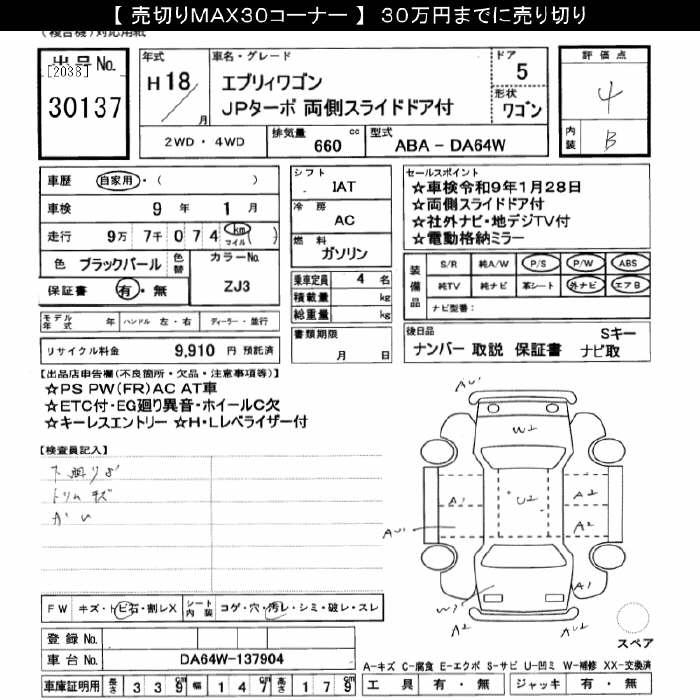 【 売切りMAX30コーナー 】 30万円までに売り切り
(複合機)対応用紙
出品No.
[2038]
30137
年式
H18
月
車名・グレード
エブリィワゴン
JPターボ 両側スライドドア付
ドア
5
形状
ワゴン
評価点
4
内装
B
2WD・4WD
排気量
660 cc
型式
ABA - DA64W
車歴 自家用・( )
車検 9 年 1 月
走行 9万 7千 0 7 4 km マイル ( )
色 ブラックパール 色替
カラーNo.
ZJ3
保証書 有・無
シフト
IAT
冷房
AC
燃料
ガソリン
乗車定員 4 名
積載量 kg
総重量 kg
セールスポイント
☆車検令和9年1月28日
☆両側スライドドア付
☆社外ナビ・地デジTV付
☆電動格納ミラー
装備品
S/R 純A/W P/S P/W ABS
純TV 純ナビ 革シート 外ナビ エアB
ナビ型番:
モデル年式 年 ハンドル 左・右 ディーラー・並行
リサイクル料金 9,910 円 預託済
書類期限
月 日
後日品
Sキー
ナンバー 取説 保証書 ナビ取
【出品店申告欄(不良箇所・欠品・注意事項等)】
☆PS PW(FR)AC AT車
☆ETC付・EG廻り異音・ホイールC欠
☆キーレスエントリー ☆H・Lレベライザー付
【検査員記入】
下廻りサビ
トリムキズ
AU1
W2
A1
U2
A2
A2
AU1
W1
A1
A2
AU2
スペア
FW キズ・トビ石・割レX
シート内装 コゲ・穴・汚レ・シミ・破レ・スレ
登録No.
車台No. DA64W-137904
A-キズ C-腐食 E-エクボ S-サビ U-凹ミ W-補修 XX-交換済
車庫証明用 長さ 3 3 9 cm 幅 1 4 7 cm 高さ 1 7 9 cm
工具 有・無 ジャッキ 有・無